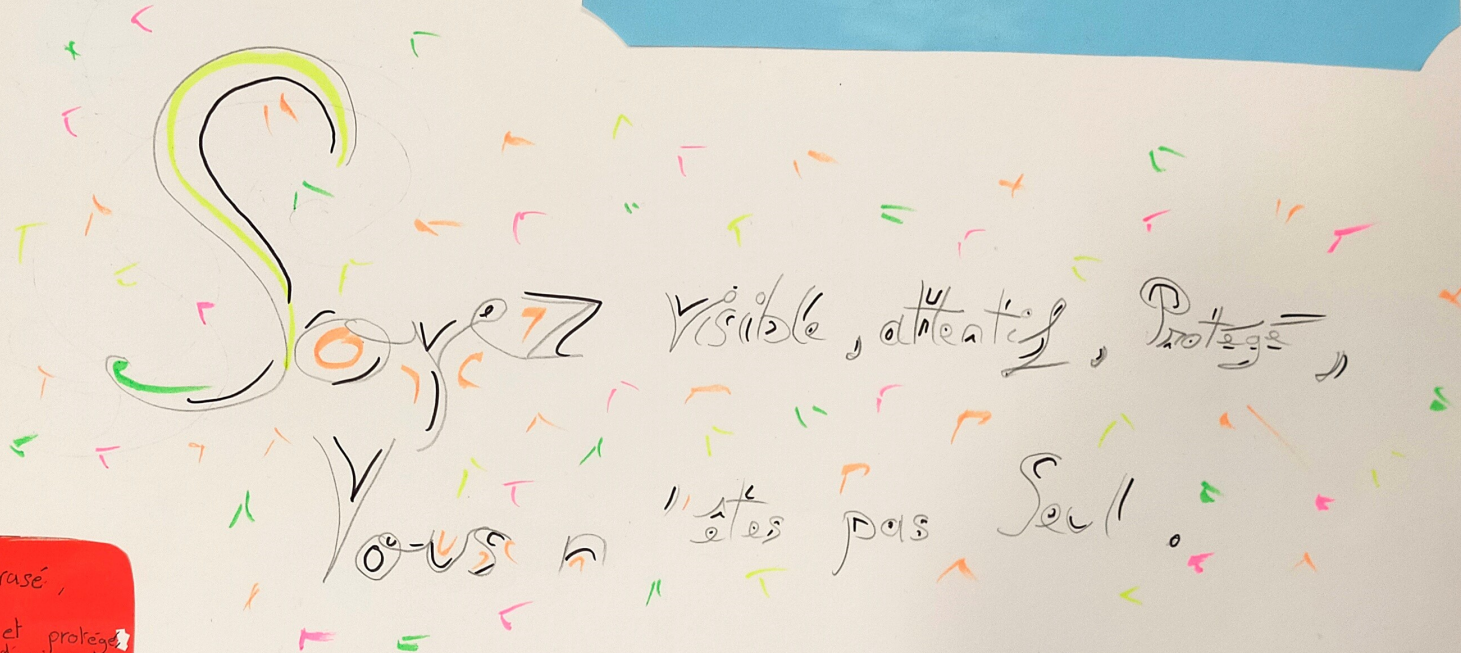 Soyez Visible, attentif, Protégé,
Vous n'êtes pas Seul.
rasé,
et protégé